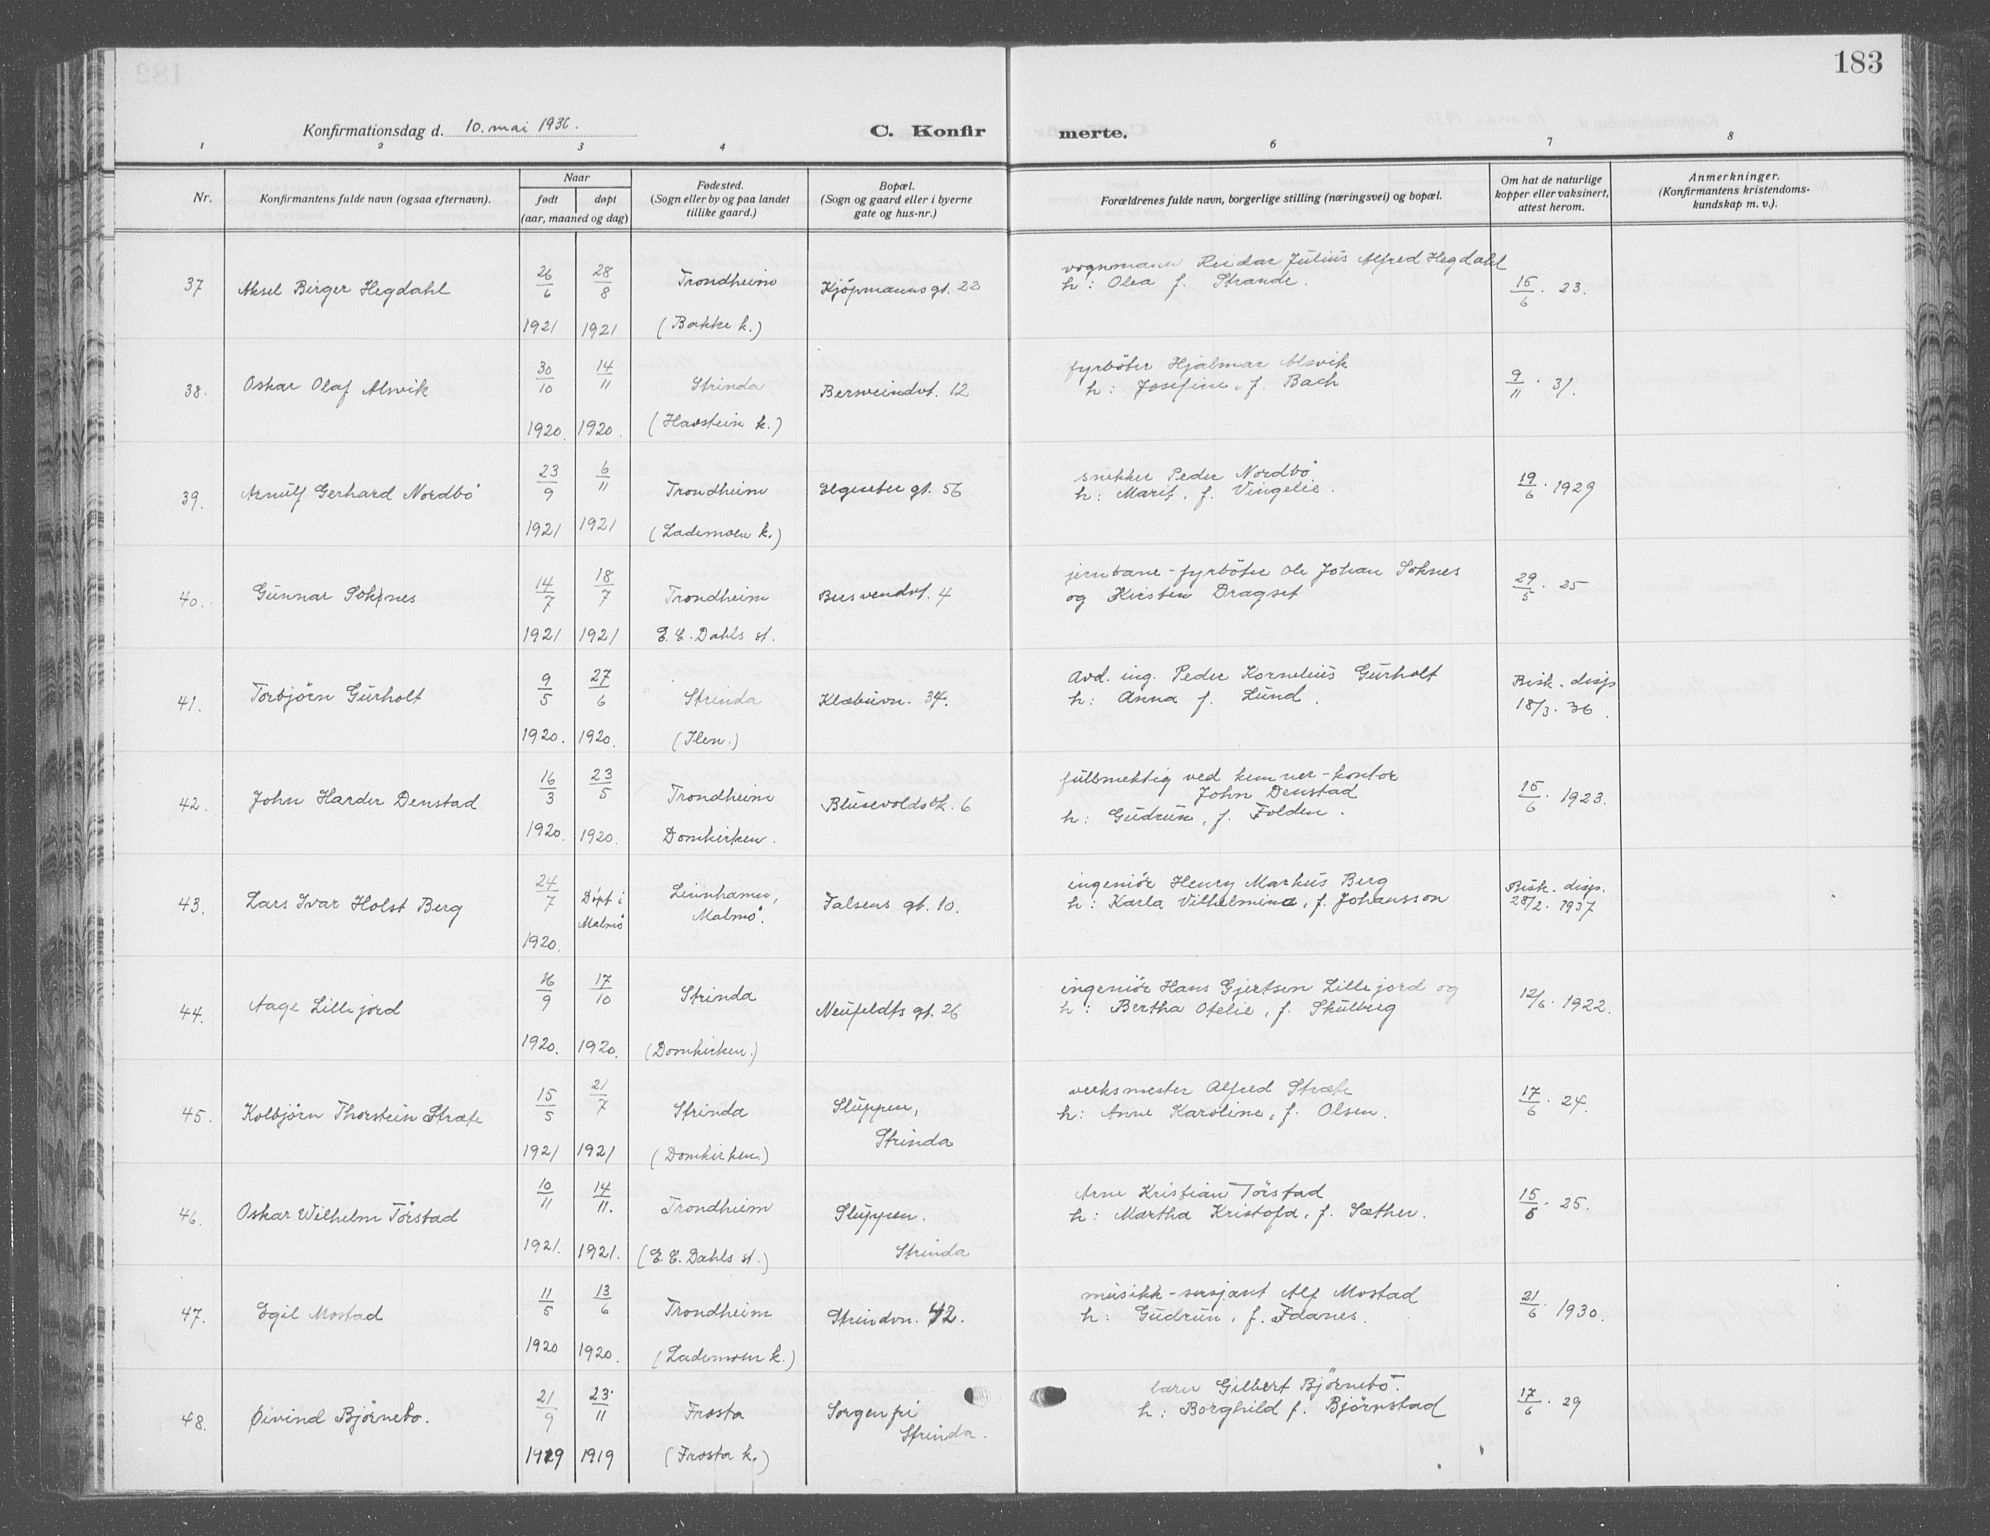 183
Konfirmationsdag d. 10. mai 1936.
C. Konfirmerte.
1 2 3 4 6 7 8
Nr.
Konfirmantens fulde navn (ogsaa efternavn).
Naar
født døpt
(aar, maaned og dag)
Fødested.
(Sogn eller by og paa landet
tillike gaard.)
Bopæl.
(Sogn og gaard eller i byerne
gate og hus-nr.)
Forældrenes fulde navn, borgerlige stilling (næringsvei) og bopæl.
Om hat de naturlige
kopper eller vaksinert,
attest herom.
Anmerkninger.
(Konfirmantens kristendoms-
kundskap m. v.).
37 Aksel Birger Hegdahl 26/6 1921 28/8 1921 Trondheim (Bakke k.) Kjöpmannsgt. 23
vognmann Reidar Julius Alfred Hegdahl
h: Olea f. Strande.
15/6. 23.
38. Oskar Olaf Alsvik 30/10 1920. 14/11 1920. Strinda (Havstein k.) Bersveindvt. 12
fyrböter Hjalmar Alsvik
h: Josefine, f. Bach
9/11. 31.
39. Arnulf Gerhard Nordbö 23/9 1921 6/11 1921 Trondheim (Lademoen k.) Elgeseter gt. 56
snekker Peder Nordbö
h: Marit, f. Vingelie.
19/6. 1929
40. Gunnar Soknes 14/7 1921 18/7 1921 Trondheim E. C. Dahls st. 4
jernbane-fyrböter Ole Johan Soknes
og Kirsten Dragset
29/5. 25
41. Torbjörn Gurholt 9/5 1920. 27/6 1920. Strinda (Ilen.) Klæbuvn. 34.
Avd. ing. Peder Kornelius Gurholt
h: Anna f. Lund.
Bisk. disp
18/3. 36.
42. John Harder Denstad 16/3 1920. 23/5 1920. Trondheim Domkirken. Blusevoldsbk. 6
fullmektig ved kemner-kontor
John Denstad
h: Gudrun, f. Folden.
15/6. 1923.
43. Lars Ivar Holst Berg 24/7 1920. Döpt i Malmö Malmö. Falsens gt. 10.
ingeniör Henry Markus Berg
h: Karla Vilhelmina, f. Johansson
Bisk. disp.
28/2. 1937
44. Aage Lillejord 16/9 1920. 17/10 1920. Strinda (Domkirken.) Neufeldts gt. 26
ingeniör Hans Gjertsen Lillejord og
h: Bertha Ofelie, f. Skulberg
12/6. 1922.
45. Kolbjörn Thorstein Stræte 15/5 1921 21/7 1921 Strinda (Domkirken.) Sluppen, Strinda
verksmester Alfred Stræte
h: Anne Karoline, f. Olsen.
17/6. 24.
46. Oskar Wilhelm Törstad 10/11 1921. 14/11. 1921. Trondheim (E. C. Dahls st.) Sluppen. Strinda
Arne Kristian Törstad
h: Martha Kristofa, f. Sæther.
15/6. 25.
47. Egil Mostad 11/5 1920 13/6 1920. Trondheim (Lademoen k.) Strindvn. 42.
musikk-sersjant Alf Mostad
h: Gudrun, f. Fdanes.
21/6. 1930.
48. Øivind Björnebo. 21/9 1919 23/11 1919 Frosta (Frosta k.) Sorgenfri Strinda.
lærer Gilbert Björnebö.
h: Borghild f. Björnstad
17/6. 29